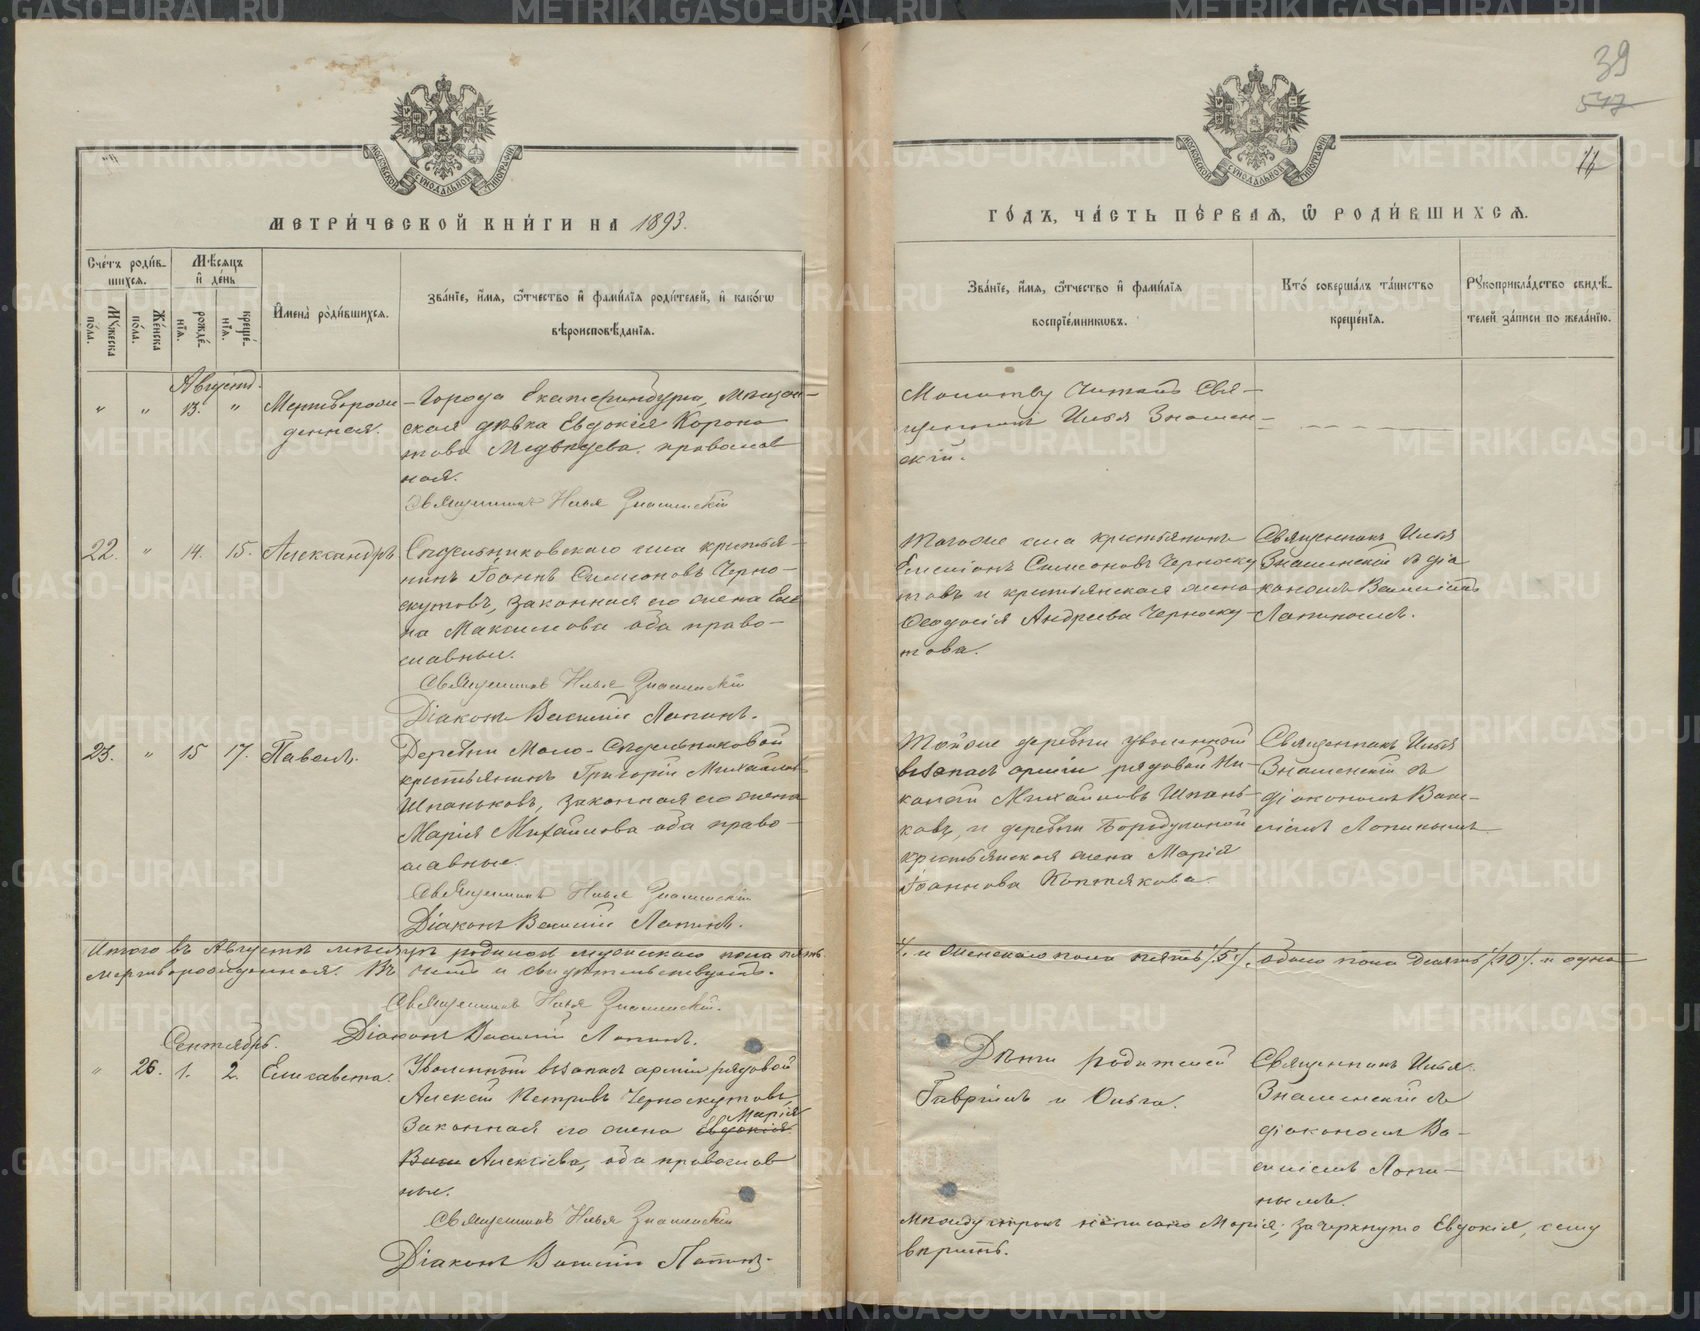 39
547
11
МОСКОВСКОЙ СѴНОДАЛЬНОЙ ТИПОГРАФІИ
МОСКОВСКОЙ СѴНОДАЛЬНОЙ ТИПОГРАФІИ
МЕТРИ́ЧЕСКОЙ КНИ́ГИ НА 1893.
ГО́ДЪ, ЧА́СТЬ ПЕ́РВАѦ, Ѡ҆ РОДИ́ВШИХСѦ.
Сче́тъ роди́в-
шихсѧ.
Мꙋ́жеска по́ла.
Же́нска по́ла.
Мѣ́сѧцъ и҆ де́нь
рожде́-
нїѧ.
креще́-
нїѧ.
И҆мена̀ роди́вшихсѧ.
Зва́нїе, и҆́мѧ, ѻ҆́тчество и҆ фами́лїѧ роди́телей, и҆ како́гѡ
вѣроисповѣ́данїѧ.
Зва́нїе, и҆́мѧ, ѻ҆́тчество и҆ фами́лїѧ
воспрїе́мникѡвъ.
Кто̀ соверша́лъ та́инство
креще́нїѧ.
Рꙋкоприкла́дство свидѣ́-
телей за́писи по жела́нїю.
Августъ.
" " 13. " Мертворож
денная.
Города Екатеринбурга, мѣщан-
ская дѣвка Евдокія Корона
това Медвѣдева. православ
ная.
Священникъ Илья Знаменскій
Молитву читалъ Свя-
щенникъ Илья Знамен-
скій.
22. " 14. 15. Александръ
Сыдельниковскаго села крестья-
нинъ Іоаннъ Симеоновъ Черно-
скутовъ, законная его жена Еле
на Максимова оба право-
славные.
Священникъ Илья Знаменскій
Діаконъ Василій Лапинъ.
Тогоже села крестьянинъ
Симеоновъ Черноску
товъ и крестьянская жена
Ѳеодосія Андреева Черноску-
това.
Священникъ Илья
Знаменскій съ діа
кономъ Василіемъ
Лапинымъ.
23. " 15 17. Павелъ.
Деревни Мало-Сыдельниковой
крестьянинъ Григорій Михайловъ
Шпаньковъ, законная его жена
Марія Михайлова оба право-
славные.
Священникъ Илья Знаменскій
Діаконъ Василій Лапинъ.
Тойже деревни уволенный
въ запасъ арміи рядовой Ни-
колай Михайловъ Шпань-
ковъ, и деревни Бородулиной
крестьянская жена Марія
Іоаннова Коптякова.
Священникъ Илья
Знаменскій съ
діакономъ Васи-
ліемъ Лапинымъ
Итого въ Августѣ мѣсяцѣ родилося мужескаго пола пять
/. и женскаго пола пять /.5./, обоего пола десять /.10./. и одна
мертворожденная. Въ чемъ и свидѣтельствуютъ.
Священникъ Илья Знаменскій.
Діаконъ Василій Лапинъ.
Сентябрь.
" 26. 1. 2. Елисавета.
Уволенный въ запасъ арміи рядовой
Алексѣй Петровъ Черноскутовъ,
Марія
Законная его жена Евдокія
Васи Алексіева, оба православ
ные.
Священникъ Илья Знаменскій
Діаконъ Василій Лапинъ.
Дѣти родителей
Гавріилъ и Ольга.
Священникъ Илья
Знаменскій съ
діакономъ Ва-
силіемъ Лапи-
нымъ
Между строкъ написано Марія; зачеркнуто Евдокія, сему
вѣрить.
METRIKI.GASO-URAL.RU